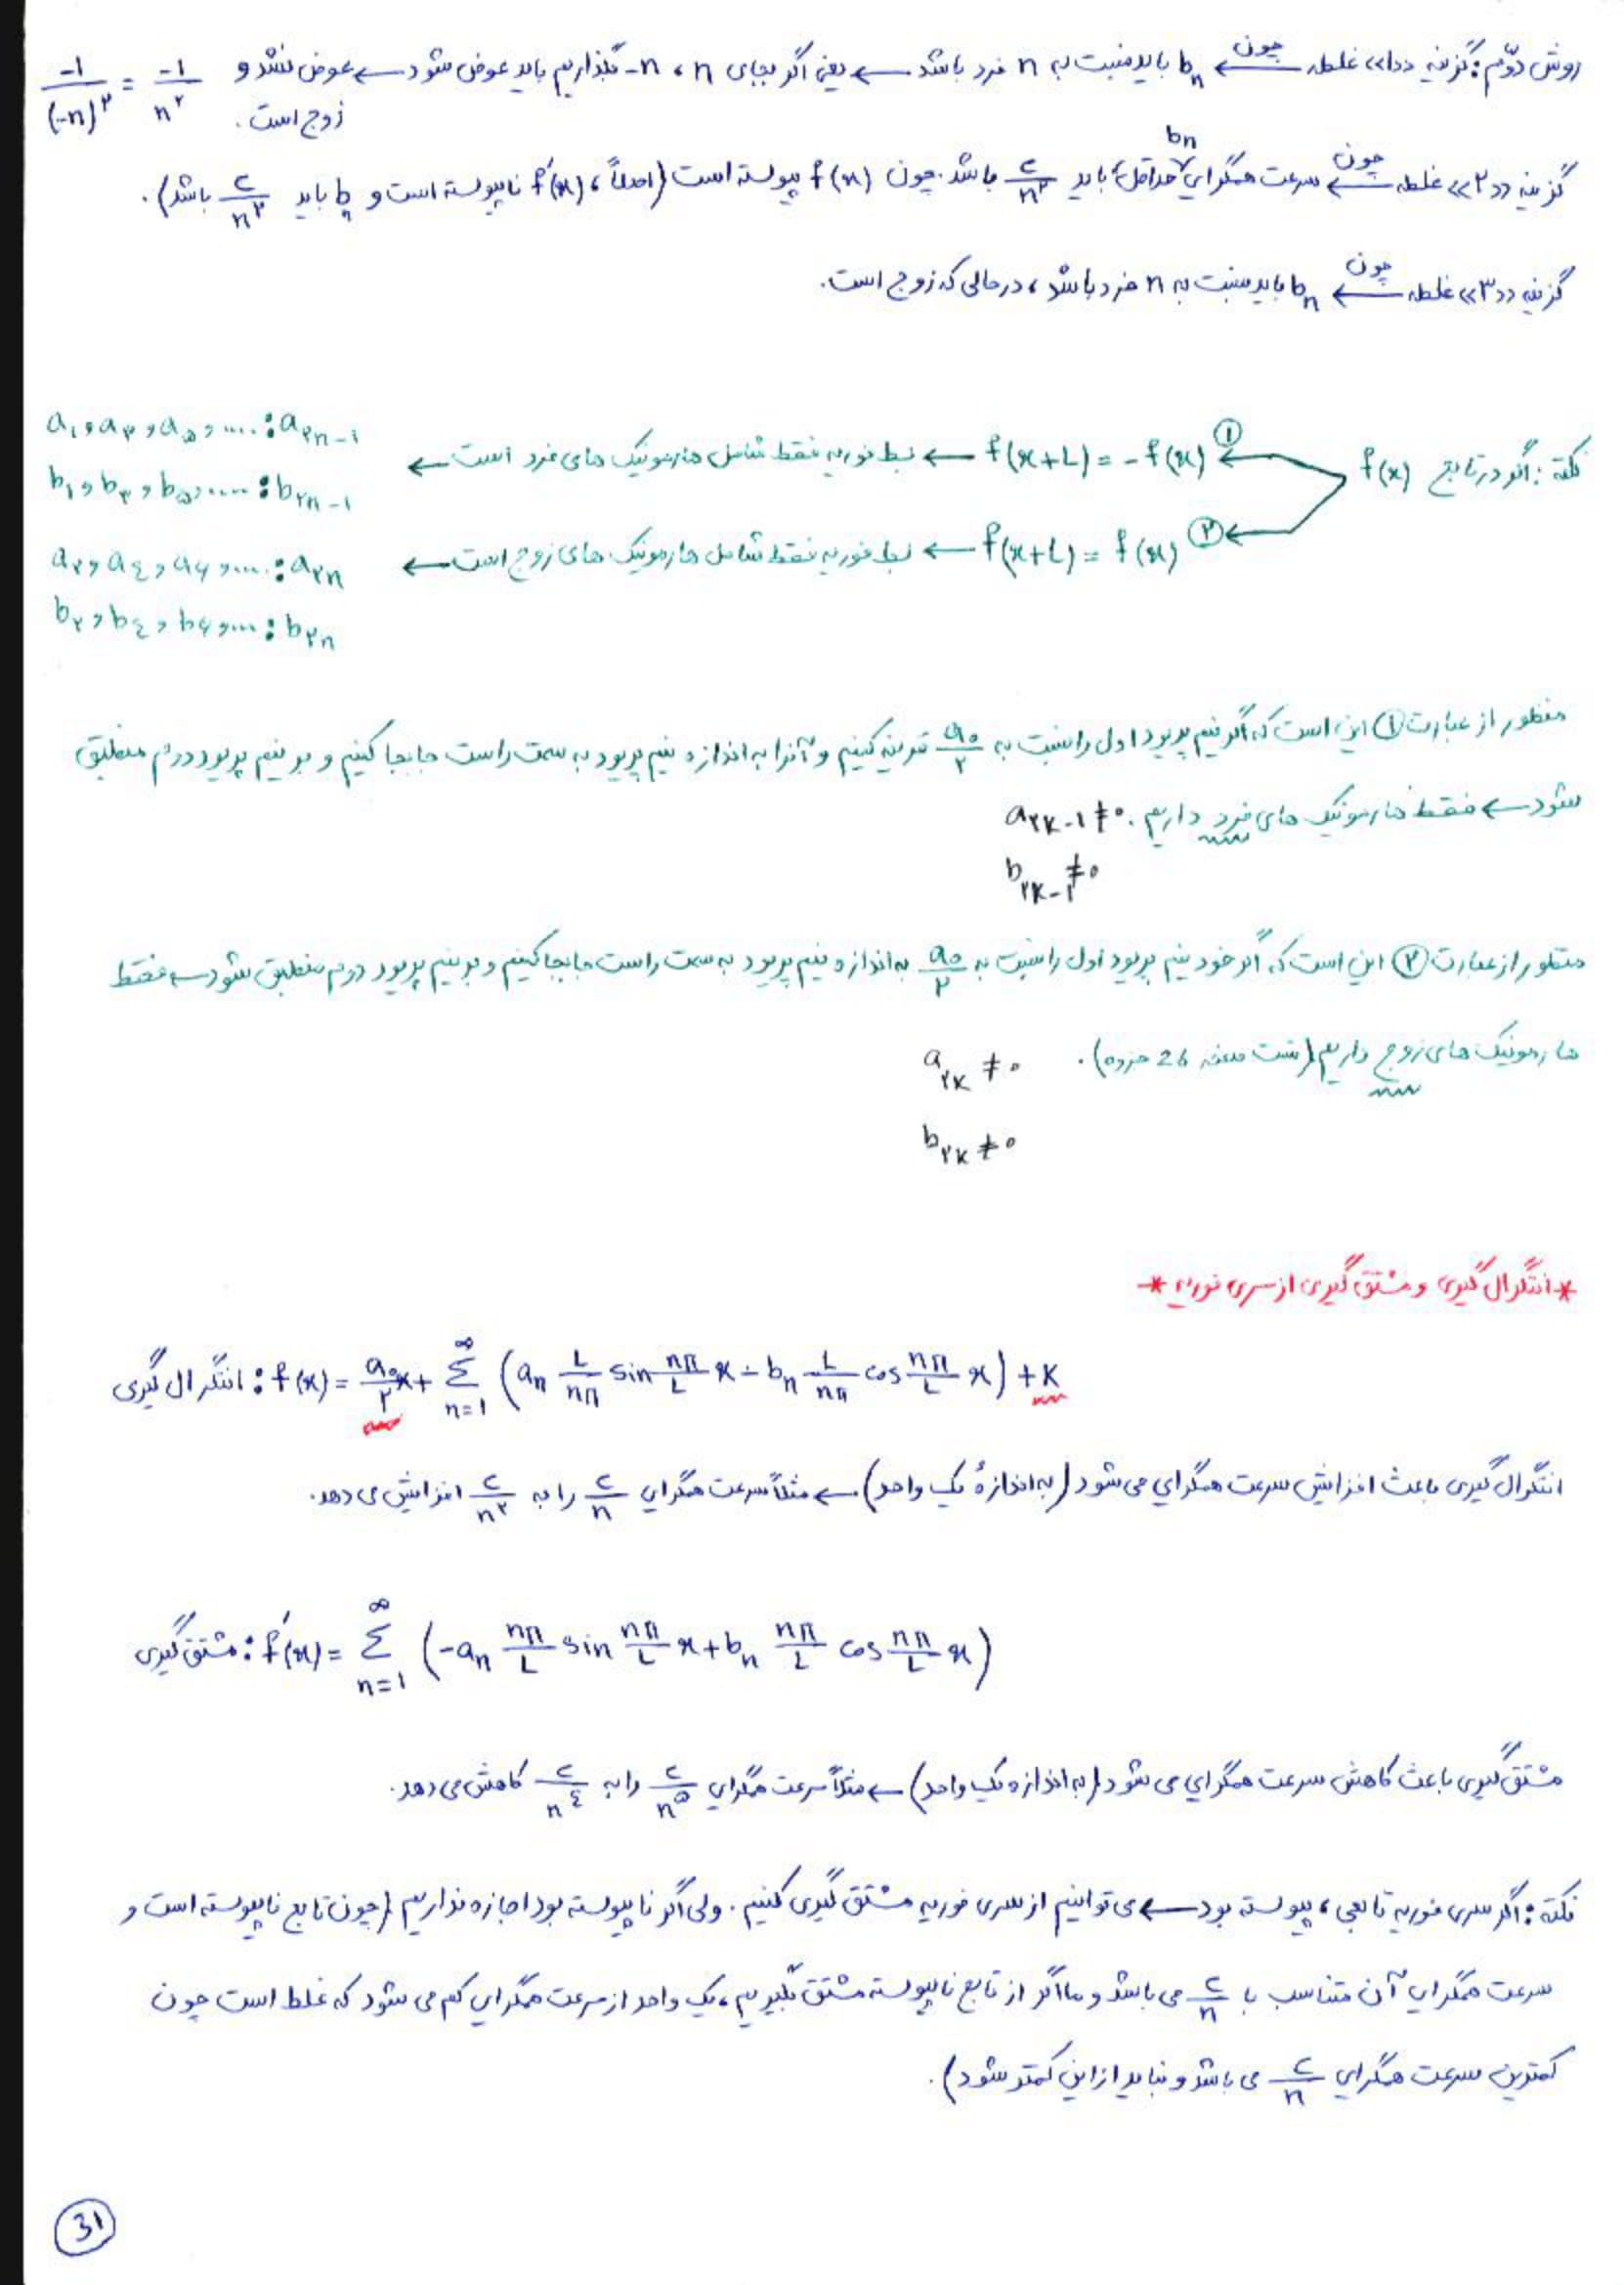 روش دوّم: گزینه «۱» غلط ← چون bₙ باید نسبت به n فرد باشد ← یعنی اگر بجای n ، -n بگذاریم باید عوض شود ← عوض نشد و -۱/(-n)^۲ = -۱/n^۲
زوج است.
گزینه «۲» غلط ← چون سرعت همگرایی bₙ حداقل باید c/n^۲ باشد. چون f(x) پیوسته است (اصلاً، f'(x) ناپیوسته است و bₙ باید c/n^۲ باشد).
گزینه «۳» غلط ← چون bₙ باید نسبت به n فرد باشد، در حالی که زوج است.
نکته: اگر در تابع f(x)
① f(x+L) = -f(x) ← بسط فوریه فقط شامل هارمونیک های فرد است ← a₁, a₃, a₅, ....: a₂ₙ₋₁
b₁, b₃, b₅, ....: b₂ₙ₋₁
② f(x+L) = f(x) ← بسط فوریه فقط شامل هارمونیک های زوج است ← a₂, a₄, a₆, ....: a₂ₙ
b₂, b₄, b₆, ...: b₂ₙ
منظور از عبارت ① این است که اگر نیم پریود اول را نسبت به a₀/۲ قرینه کنیم و آنرا به اندازه نیم پریود به سمت راست جابجا کنیم و بر نیم پریود دوم منطبق
شود ← فقط هارمونیک های فرد داریم. a₂ₖ₋₁ ≠ ۰
b₂ₖ₋₁ ≠ ۰
منظور از عبارت ② این است که اگر خود نیم پریود اول را نسبت به a₀/۲ به اندازه نیم پریود به سمت راست جابجا کنیم و بر نیم پریود دوم منطبق شود ← فقط
هارمونیک های زوج داریم (پشت صفحه 26 جزوه). a₂ₖ ≠ ۰
b₂ₖ ≠ ۰
* انتگرال گیری و مشتق گیری از سری فوریه *
انتگرال گیری: f(x) = a₀/۲ x + Σ_{n=1}^{∞} (aₙ L/nπ sin nπ/L x - bₙ L/nπ cos nπ/L x) + K
انتگرال گیری باعث افزایش سرعت همگرایی می شود (به اندازهٔ یک واحد) ← مثلاً سرعت همگرایی c/n را به c/n^۲ افزایش می دهد.
مشتق گیری: f'(x) = Σ_{n=1}^{∞} (-aₙ nπ/L sin nπ/L x + bₙ nπ/L cos nπ/L x)
مشتق گیری باعث کاهش سرعت همگرایی می شود (به اندازه یک واحد) ← مثلاً سرعت همگرایی c/n^۵ را به c/n^۴ کاهش می دهد.
نکته: اگر سری فوریه تابعی، پیوسته بود ← می توانیم از سری فوریه مشتق گیری کنیم. ولی اگر ناپیوسته بود اجازه نداریم (چون تابع ناپیوسته است و
سرعت همگرایی آن متناسب با c/n می باشد و ما اگر از تابع ناپیوسته مشتق بگیریم، یک واحد از سرعت همگرایی کم می شود که غلط است چون
کمترین سرعت همگرایی c/n می باشد و نباید از این کمتر شود).
31